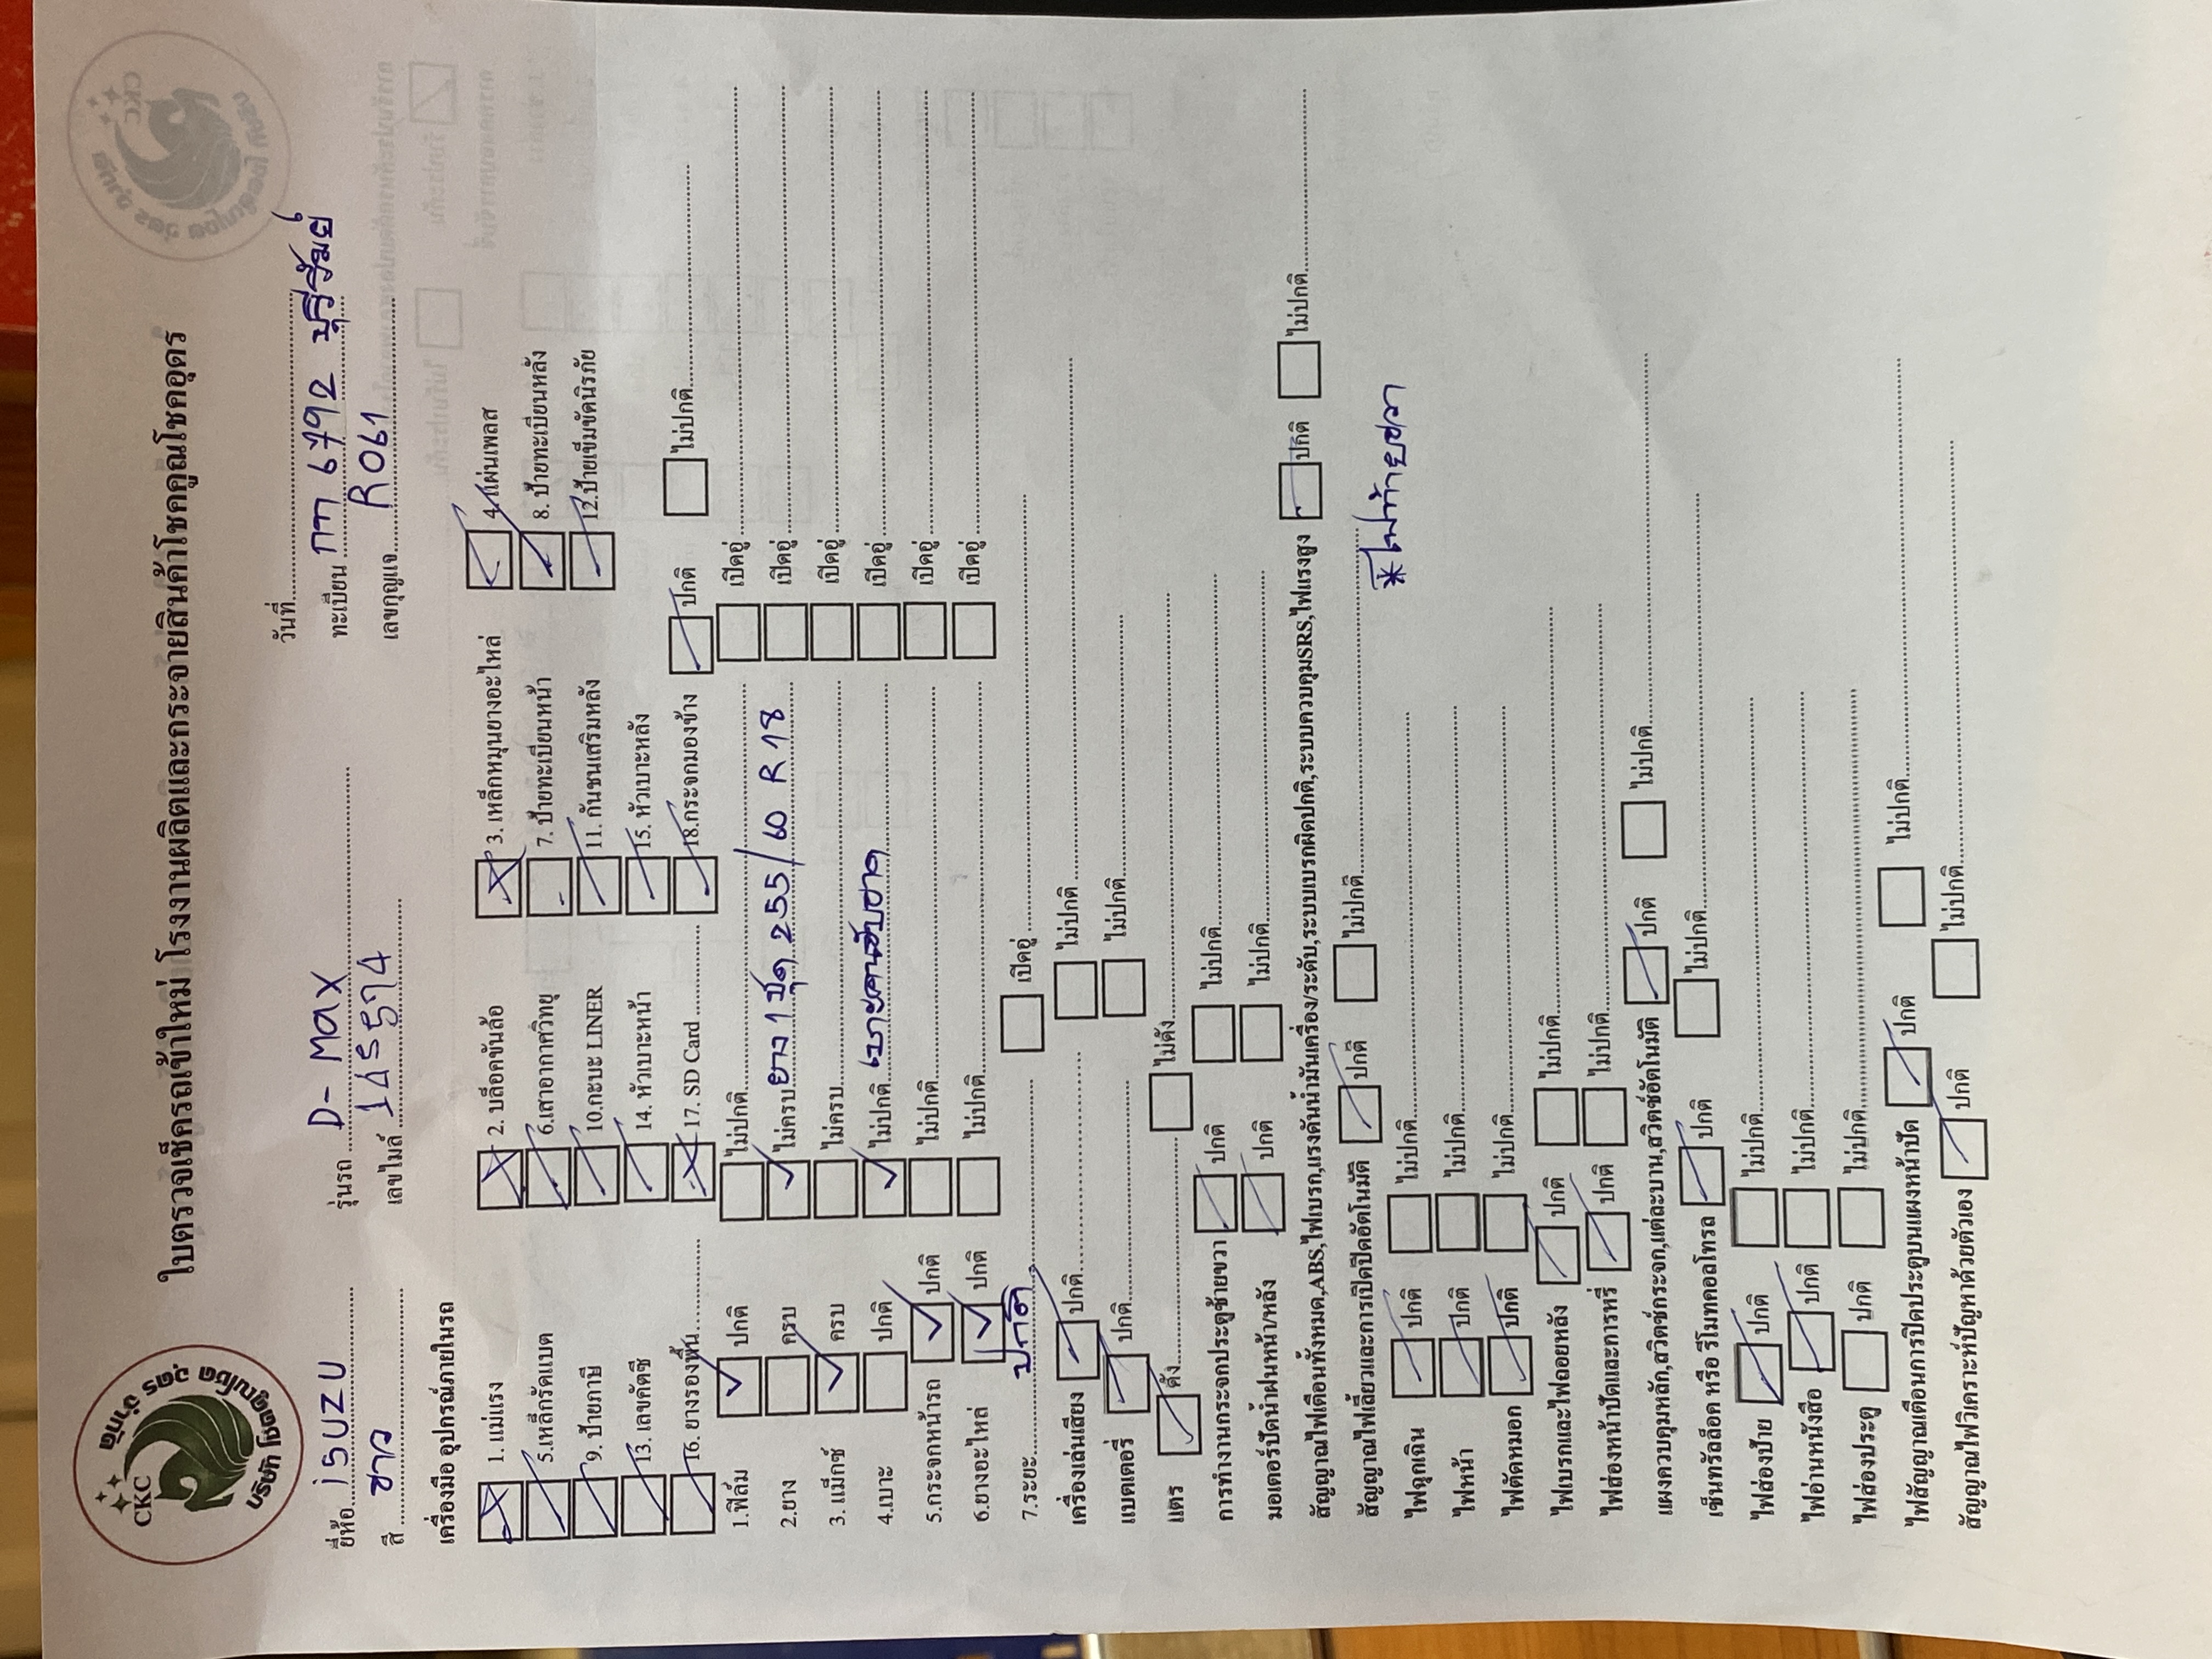 ใบตรวจเช็ครถเข้าใหม่ โรงงานผลิตและกระจายสินค้าโชคคูณโชคอุดร
CKC
บริษัท คูณโชคอุดร จำกัด
วันที่
ยี่ห้อ ISUZU รุ่นรถ D-MAX ทะเบียน กก 6792 บุรีรัมย์
สี ขาว เลขไมล์ เลขกุญแจ R061
เครื่องมือ อุปกรณ์ภายในรถ
1. แม่แรง 2. บล็อคขันล้อ 3. เหล็กหมุนยางอะไหล่ 4.แผ่นเพลส
5.เหล็กรัดแบต 6.เสาอากาศวิทยุ 7. ป้ายทะเบียนหน้า 8. ป้ายทะเบียนหลัง
9. ป้ายภาษี 10.กะบะ LINER 11. กันชนเสริมหลัง 12.ป้ายเข็มขัดนิรภัย
13. เลขคัตซี 14. หัวเบาะหน้า 15. หัวเบาะหลัง
16. ยางรองพื้น 17. SD Card 18.กระจกมองข้าง ปกติ ไม่ปกติ
1.ฟิล์ม ปกติ ไม่ปกติ เปิดอู่
2.ยาง ครบ ไม่ครบ ยาง 1 ชุด 255/60 R 18 เปิดอู่
3. แม็กซ์ ครบ ไม่ครบ เปิดอู่
4.เบาะ ปกติ ไม่ปกติ เบาะคนขับขาด เปิดอู่
5.กระจกหน้ารถ ปกติ ไม่ปกติ เปิดอู่
6.ยางอะไหล่ ปกติ ไม่ปกติ เปิดอู่
7.ระยะ ปกติ เปิดอู่
เครื่องเล่นเสียง ปกติ ไม่ปกติ
แบตเตอรี่ ปกติ ไม่ปกติ
แตร ดัง ไม่ดัง
การทำงานกระจกประตูซ้ายขวา ปกติ ไม่ปกติ
มอเตอร์ปัดน้ำฝนหน้า/หลัง ปกติ ไม่ปกติ
สัญญาณไฟเตือนทั้งหมด,ABS,ไฟเบรก,แรงดันน้ำมันเครื่อง/ระดับ,ระบบเบรกผิดปกติ,ระบบควบคุมSRS,ไฟแรงสูง ปกติ ไม่ปกติ
สัญญาณไฟเลี้ยวและการเปิดปิดอัตโนมัติ ปกติ ไม่ปกติ
ไฟฉุกเฉิน ปกติ ไม่ปกติ
ไฟหน้า ปกติ ไม่ปกติ
ไฟตัดหมอก ปกติ ไม่ปกติ
ไฟเบรกและไฟถอยหลัง ปกติ ไม่ปกติ
ไฟส่องหน้าปัดและการหรี่ ปกติ ไม่ปกติ
แผงควบคุมหลัก,สวิตช์กระจก,แต่ละบาน,สวิตช์อัตโนมัติ ปกติ ไม่ปกติ
เซ็นทรัลล็อค หรือ รีโมทคอลโทรล ปกติ ไม่ปกติ
ไฟส่องป้าย ปกติ ไม่ปกติ
ไฟอ่านหนังสือ ปกติ ไม่ปกติ
ไฟส่องประตู ปกติ ไม่ปกติ
ไฟสัญญาณเตือนการปิดประตูบนแผงหน้าปัด ปกติ ไม่ปกติ
สัญญาณไฟวิเคราะห์ปัญหาด้วยตัวเอง ปกติ ไม่ปกติ